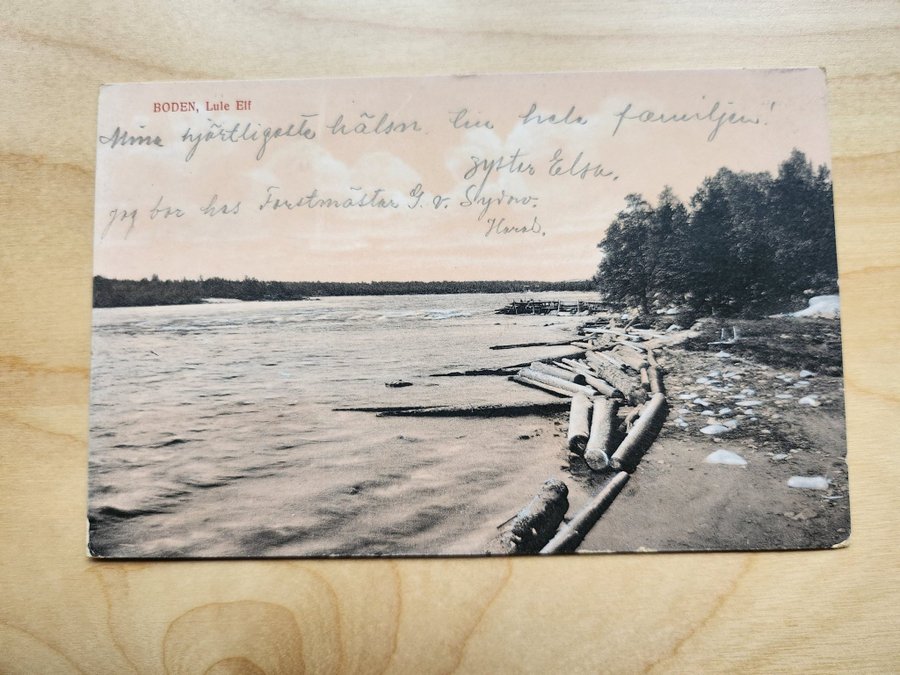 BODEN, Lule Elf
Mina hjärtligaste hälsn. hela familjen!
syster Elsa.
jag bor hos Forstmästar G. v. Sydow.